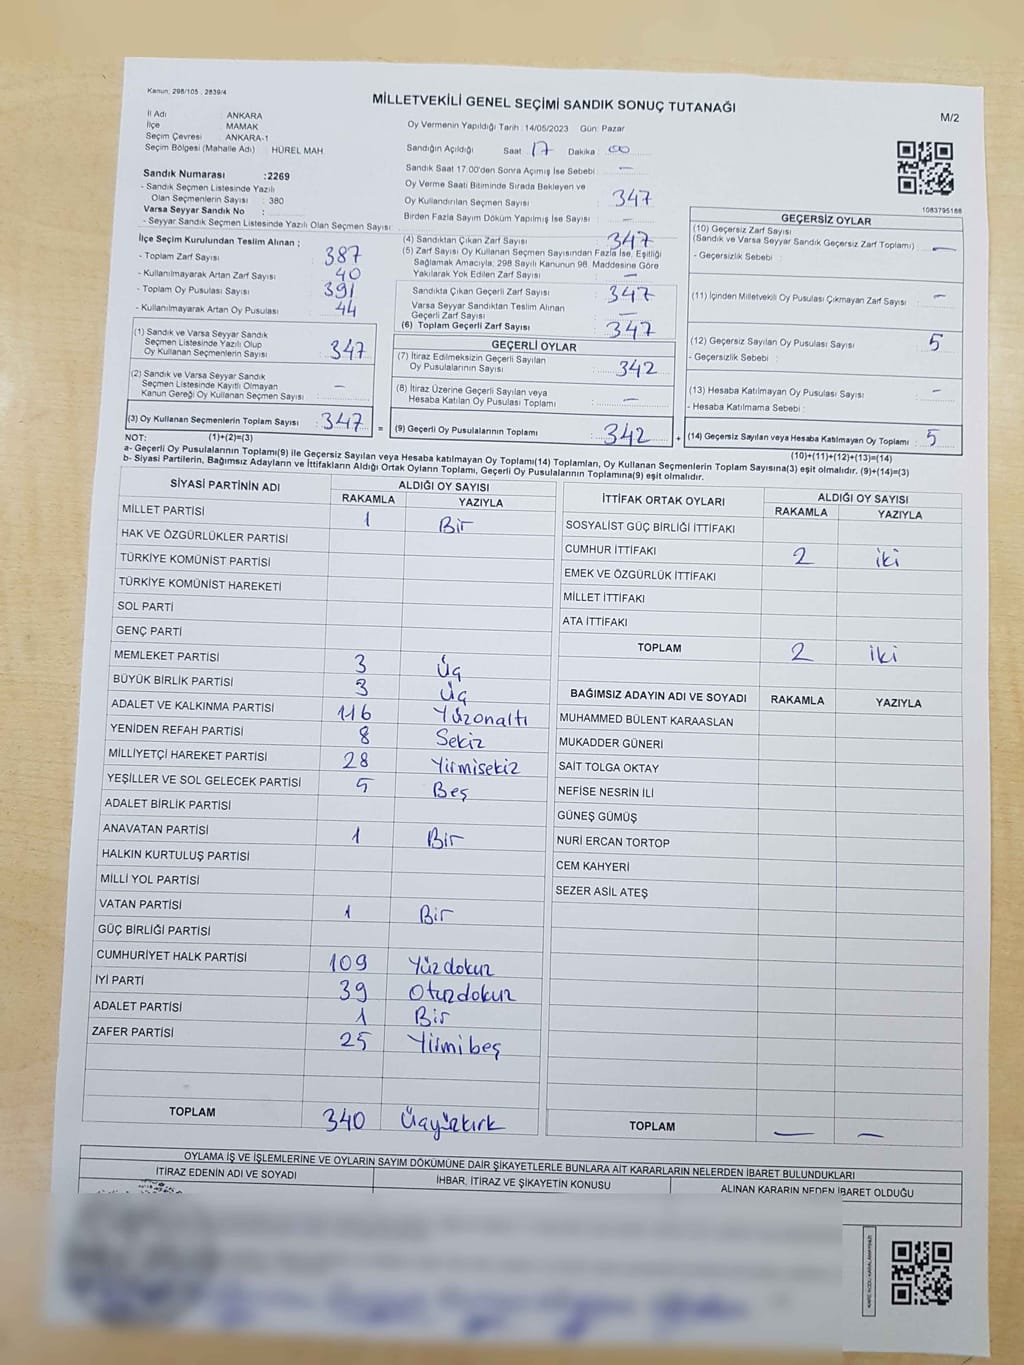 Kanun: 298/105 , 2839/4
MİLLETVEKİLİ GENEL SEÇİMİ SANDIK SONUÇ TUTANAĞI
M/2
İl Adı : ANKARA
İlçe : MAMAK
Seçim Çevresi : ANKARA-1
Seçim Bölgesi (Mahalle Adı) : HÜREL MAH.
Oy Vermenin Yapıldığı Tarih :14/05/2023 Gün: Pazar
Sandığın Açıldığı Saat : 17 Dakika : 00
Sandık Saat 17:00'den Sonra Açımış İse Sebebi : —
Oy Verme Saati Bitiminde Sırada Bekleyen ve
Oy Kullandırılan Seçmen Sayısı : 347
Birden Fazla Sayım Döküm Yapılmış İse Sayısı : —
Sandık Numarası :2269
- Sandık Seçmen Listesinde Yazılı
Olan Seçmenlerin Sayısı : 380
Varsa Seyyar Sandık No :
- Seyyar Sandık Seçmen Listesinde Yazılı Olan Seçmen Sayısı :
1083795188
İlçe Seçim Kurulundan Teslim Alınan ;
- Toplam Zarf Sayısı : 387
- Kullanılmayarak Artan Zarf Sayısı : 40
- Toplam Oy Pusulası Sayısı : 391
- Kullanılmayarak Artan Oy Pusulası : 44
(1) Sandık ve Varsa Seyyar Sandık
Seçmen Listesinde Yazılı Olup
Oy Kullanan Seçmenlerin Sayısı : 347
(2) Sandık ve Varsa Seyyar Sandık
Seçmen Listesinde Kayıtlı Olmayan
Kanun Gereği Oy Kullanan Seçmen Sayısı : —
(3) Oy Kullanan Seçmenlerin Toplam Sayısı : 347
(4) Sandıktan Çıkan Zarf Sayısı : 347
(5) Zarf Sayısı Oy Kullanan Seçmen Sayısından Fazla İse, Eşitliği
Sağlamak Amacıyla; 298 Sayılı Kanunun 98. Maddesine Göre
Yakılarak Yok Edilen Zarf Sayısı : —
Sandıkta Çıkan Geçerli Zarf Sayısı : 347
Varsa Seyyar Sandıktan Teslim Alınan
Geçerli Zarf Sayısı : —
(6) Toplam Geçerli Zarf Sayısı : 347
GEÇERLİ OYLAR
(7) İtiraz Edilmeksizin Geçerli Sayılan
Oy Pusulalarının Sayısı : 342
(8) İtiraz Üzerine Geçerli Sayılan veya
Hesaba Katılan Oy Pusulası Toplamı : —
= (9) Geçerli Oy Pusulalarının Toplamı : 342
GEÇERSİZ OYLAR
(10) Geçersiz Zarf Sayısı
(Sandık ve Varsa Seyyar Sandık Geçersiz Zarf Toplamı) : —
- Geçersizlik Sebebi :
(11) İçinden Milletvekili Oy Pusulası Çıkmayan Zarf Sayısı : —
(12) Geçersiz Sayılan Oy Pusulası Sayısı : 5
- Geçersizlik Sebebi :
(13) Hesaba Katılmayan Oy Pusulası : —
- Hesaba Katılmama Sebebi :
+ (14) Geçersiz Sayılan veya Hesaba Katılmayan Oy Toplamı : 5
NOT: (1)+(2)=(3)
(10)+(11)+(12)+(13)=(14)
a- Geçerli Oy Pusulalarının Toplamı(9) ile Geçersiz Sayılan veya Hesaba katılmayan Oy Toplamı(14) Toplamları, Oy Kullanan Seçmenlerin Toplam Sayısına(3) eşit olmalıdır. (9)+(14)=(3)
b- Siyasi Partilerin, Bağımsız Adayların ve İttifakların Aldığı Ortak Oyların Toplamı, Geçerli Oy Pusulalarının Toplamına(9) eşit olmalıdır.
SİYASİ PARTİNİN ADI ALDIĞI OY SAYISI
RAKAMLA YAZIYLA
MİLLET PARTİSİ 1 Bir
HAK VE ÖZGÜRLÜKLER PARTİSİ
TÜRKİYE KOMÜNİST PARTİSİ
TÜRKİYE KOMÜNİST HAREKETİ
SOL PARTİ
GENÇ PARTİ
MEMLEKET PARTİSİ 3 Üç
BÜYÜK BİRLİK PARTİSİ 3 Üç
ADALET VE KALKINMA PARTİSİ 116 Yüzonaltı
YENİDEN REFAH PARTİSİ 8 Sekiz
MİLLİYETÇİ HAREKET PARTİSİ 28 Yirmisekiz
YEŞİLLER VE SOL GELECEK PARTİSİ 5 Beş
ADALET BİRLİK PARTİSİ
ANAVATAN PARTİSİ 1 Bir
HALKIN KURTULUŞ PARTİSİ
MİLLİ YOL PARTİSİ
VATAN PARTİSİ 1 Bir
GÜÇ BİRLİĞİ PARTİSİ
CUMHURİYET HALK PARTİSİ 109 Yüzdokuz
İYİ PARTİ 39 Otuzdokuz
ADALET PARTİSİ 1 Bir
ZAFER PARTİSİ 25 Yirmibeş
TOPLAM 340 Üçyüzkırk
İTTİFAK ORTAK OYLARI ALDIĞI OY SAYISI
RAKAMLA YAZIYLA
SOSYALİST GÜÇ BİRLİĞİ İTTİFAKI
CUMHUR İTTİFAKI 2 iki
EMEK VE ÖZGÜRLÜK İTTİFAKI
MİLLET İTTİFAKI
ATA İTTİFAKI
TOPLAM 2 iki
BAĞIMSIZ ADAYIN ADI VE SOYADI RAKAMLA YAZIYLA
MUHAMMED BÜLENT KARAASLAN
MUKADDER GÜNERİ
SAİT TOLGA OKTAY
NEFİSE NESRİN İLİ
GÜNEŞ GÜMÜŞ
NURİ ERCAN TORTOP
CEM KAHYERİ
SEZER ASİL ATEŞ
TOPLAM — —
OYLAMA İŞ VE İŞLEMLERİNE VE OYLARIN SAYIM DÖKÜMÜNE DAİR ŞİKAYETLERLE BUNLARA AİT KARARLARIN NELERDEN İBARET BULUNDUKLARI
İTİRAZ EDENİN ADI VE SOYADI İHBAR, İTİRAZ VE ŞİKAYETİN KONUSU ALINAN KARARIN NEDEN İBARET OLDUĞU